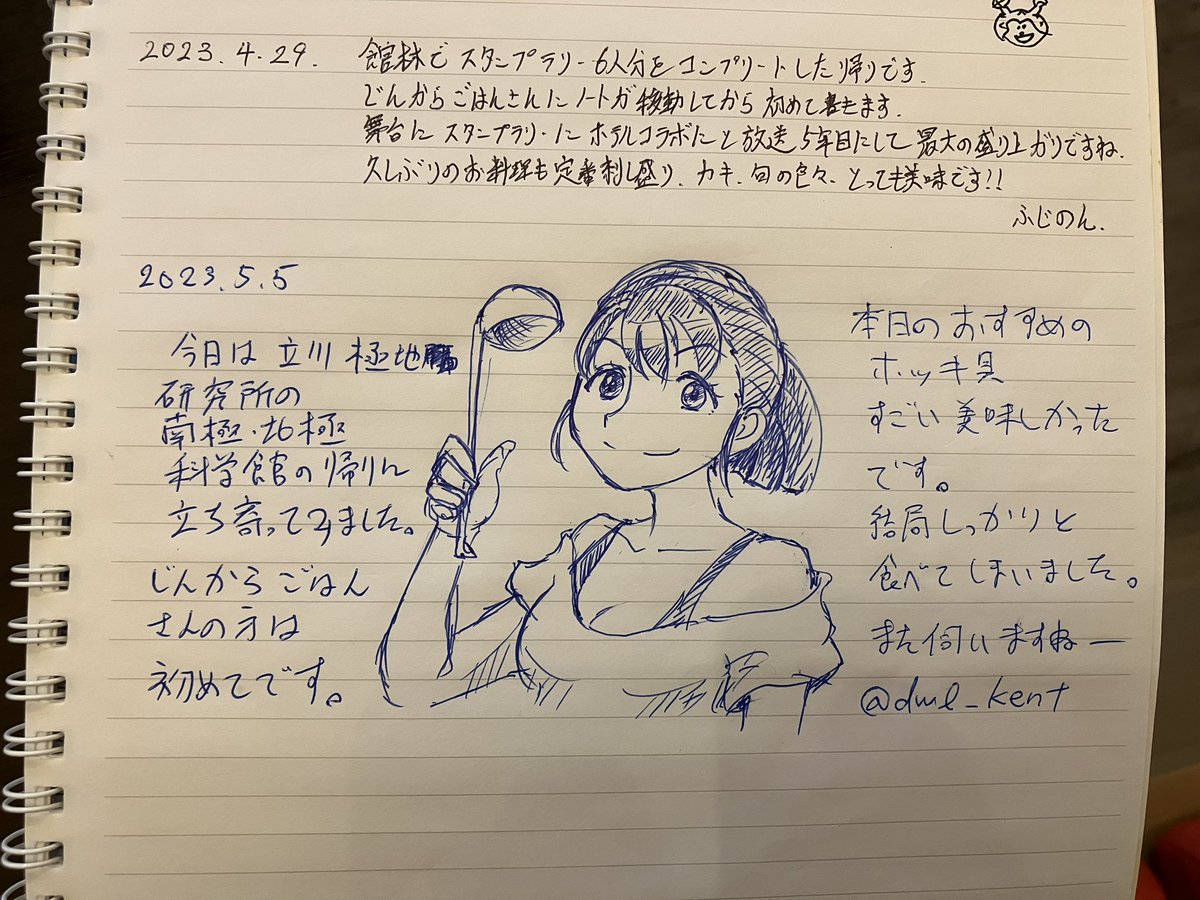 2023.4.29. 館林でスタンプラリー6人分をコンプリートした帰りです.
じんからごはんさんにノートが移動してから初めて書きます.
舞台にスタンプラリーにホテルコラボにと放送5年目にして最大の盛り上がりですね.
久しぶりのお料理も定番刺し盛り、カキ、旬の色々、とっても美味です!!
ふじのん.
2023.5.5
今日は立川極地
研究所の
南極・北極
科学館の帰りに
立ち寄ってみました。
じんからごはん
さんの方は
初めてです。
本日のおすすめの
ホッキ貝
すごい美味しかった
です。
結局しっかりと
食べてしまいました。
また伺いますねー
@dml_kent